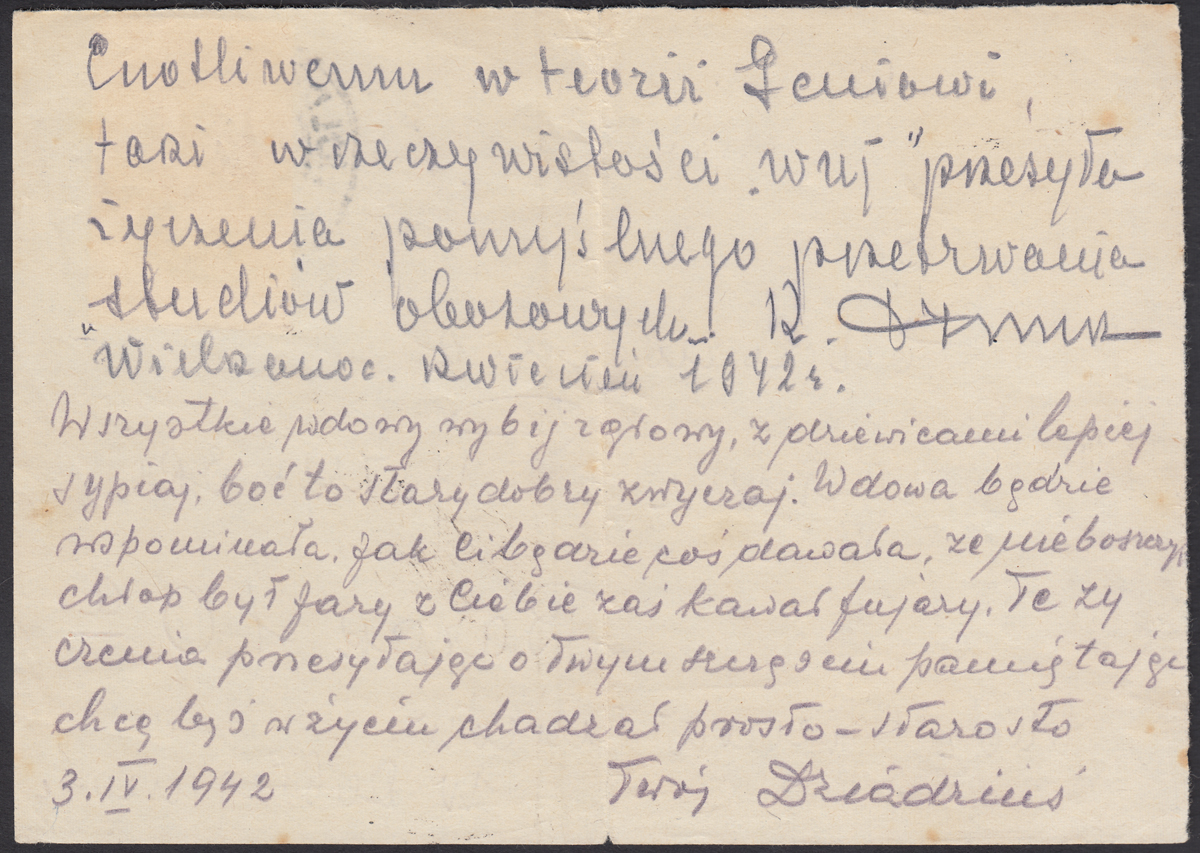 Cnotliwemu w teorii Geniowi,
taki w rzeczywistości „wuj" przesyła
życzenia pomyślnego przetrwania
studiów obozowych. R.
Wielkanoc. Kwiecień 1942 r.
Wszystkie wdowy wybij z głowy, z dziewicami lepiej
sypiaj, boć to stary dobry zwyczaj. Wdowa będzie
wspominała, jak Ci będzie coś dawała, że nieboszczyk
chłop był jary z Ciebie zaś kawał fujary. Te ży
czenia przesyłając o Twym szczęściu pamiętając
chcę byś w życiu chadzał prosto - starosto
3.IV.1942 Twój Dziadziuś